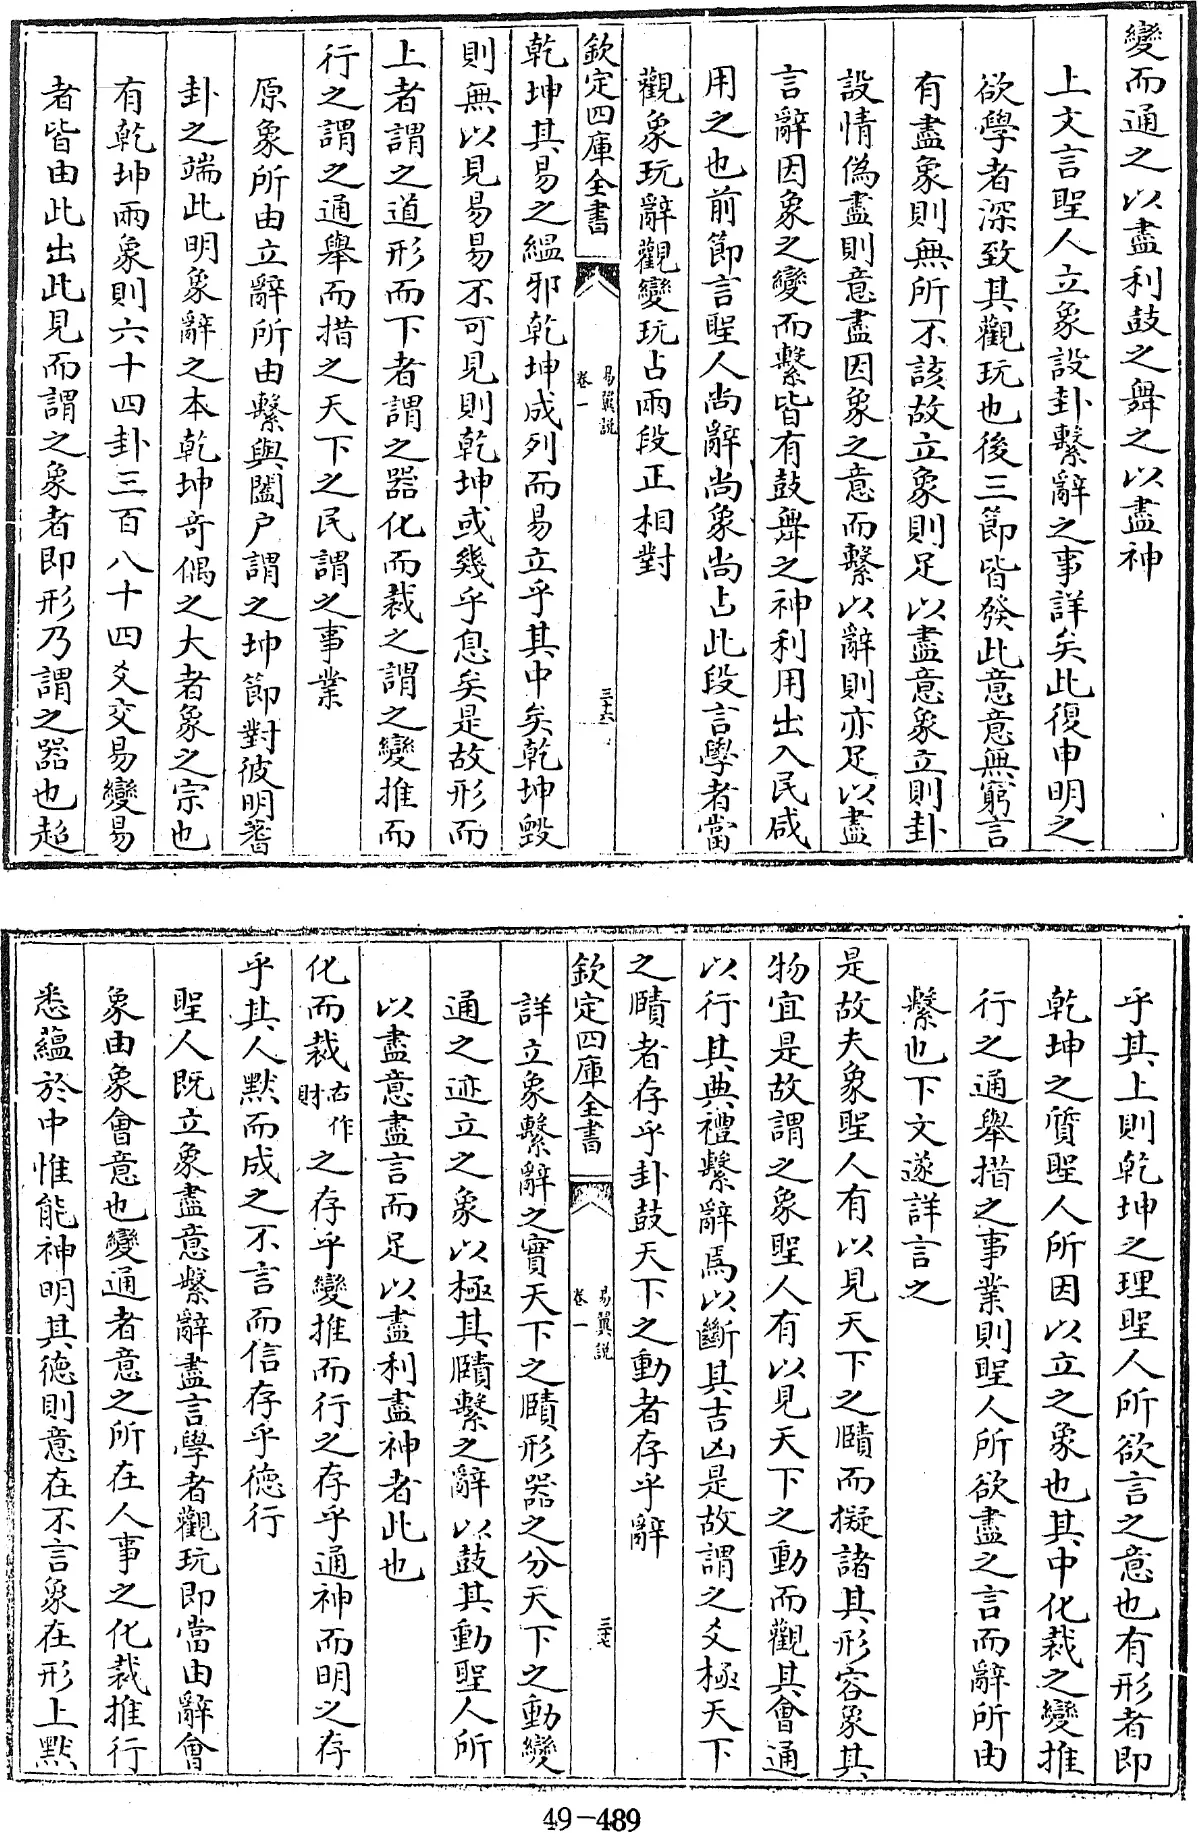 變而通之以盡利鼓之舞之以盡神
上文言聖人立象設卦繫辭之事詳矣此復申明之
欲學者深致其觀玩也後三節皆發此意意無窮言
有盡象則無所不該故立象則足以盡意象立則卦
設情偽盡則意盡因象之意而繫以辭則亦足以盡
言辭因象之變而繫皆有鼓舞之神利用出入民咸
用之也前節言聖人尚辭尚象尚占此段言學者當
觀象玩辭觀變玩占兩段正相對
欽定四庫全書
易翼說
卷一
三十六
乾坤其易之縕邪乾坤成列而易立乎其中矣乾坤毀
則無以見易易不可見則乾坤或幾乎息矣是故形而
上者謂之道形而下者謂之器化而裁之謂之變推而
行之謂之通舉而措之天下之民謂之事業
原象所由立辭所由繫與闔户謂之坤節對彼明蓍
卦之端此明象辭之本乾坤奇偶之大者象之宗也
有乾坤兩象則六十四卦三百八十四爻交易變易
者皆由此出此見而謂之象者即形乃謂之器也超
乎其上則乾坤之理聖人所欲言之意也有形者即
乾坤之質聖人所因以立之象也其中化裁之變推
行之通舉措之事業則聖人所欲盡之言而辭所由
繫也下文遂詳言之
是故夫象聖人有以見天下之賾而擬諸其形容象其
物宜是故謂之象聖人有以見天下之動而觀其會通
以行其典禮繫辭焉以斷其吉凶是故謂之爻極天下
之賾者存乎卦鼓天下之動者存乎辭
欽定四庫全書
易翼說
卷一
三十七
詳立象繫辭之實天下之賾形器之分天下之動變
通之迹立之象以極其賾繫之辭以鼓其動聖人所
以盡意盡言而足以盡利盡神者此也
化而裁古作財之存乎變推而行之存乎通神而明之存
乎其人默而成之不言而信存乎德行
聖人既立象盡意繫辭盡言學者觀玩即當由辭會
象由象會意也變通者意之所在人事之化裁推行
悉蘊於中惟能神明其德則意在不言象在形上默
49-489